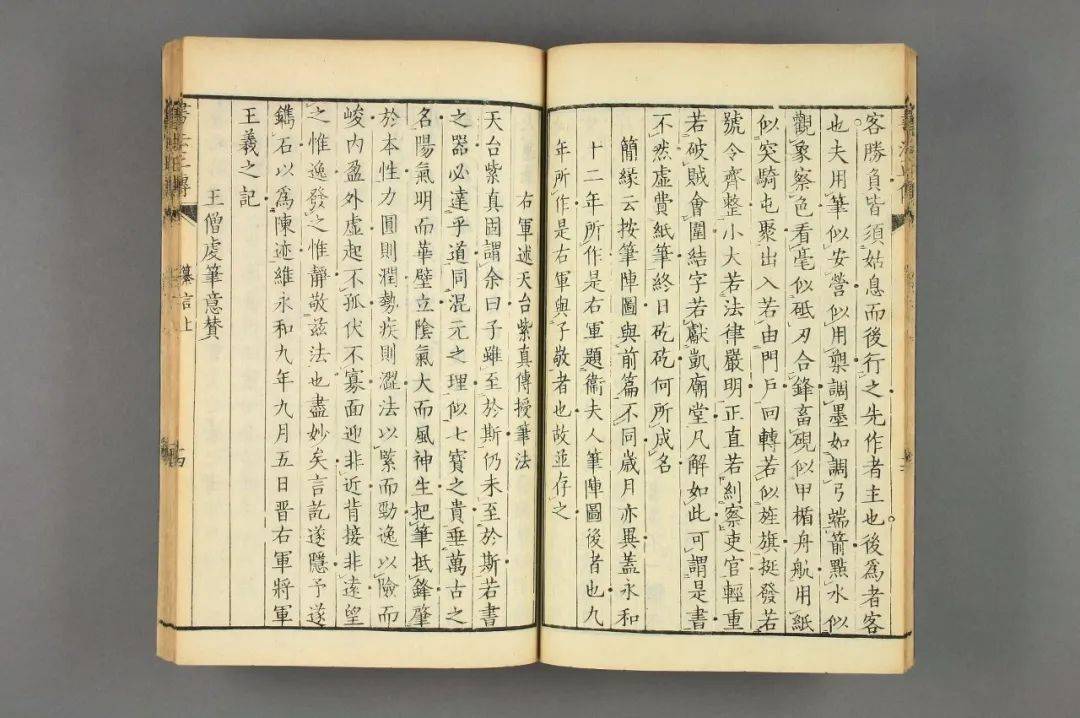 客勝負皆須姑息而後行之先作者主也後爲者客
也夫用筆似安營似用槊調墨如調弓端箭點水似
觀象察色看毫似砥刃合鋒畜硯似甲楯舟航用紙
似突騎屯聚出入若由門戶回轉若似旌旗挺發若
號令齊整小大若法律嚴明正直若糾察吏官輕重
若破賊會圍結字若獻凱廟堂凡解如此可謂是書
不然虛費紙筆終日矻矻何所成名
簡緣云按筆陣圖與前篇不同歲月亦異蓋永和
十二年所作是右軍題衞夫人筆陣圖後者也九
年所作是右軍與子敬者也故並存之
右軍述天台紫真傳授筆法
天台紫真因謂余曰子雖至於斯仍未至於斯若書
之器必達乎道同混元之理似七寶之貴垂萬古之
名陽氣明而華壁立陰氣大而風神生把筆抵鋒肇
於本性力圓則潤勢疾則澀法以緊而勁逸以險而
峻内盈外虛起不孤伏不寡面迎非近背接非遠望
之惟逸發之惟靜敬兹法也盡妙矣言訖遂隱予遂
鐫石以爲陳迹維永和九年九月五日晋右軍將軍
王羲之記
王僧虔筆意贊
纂言上